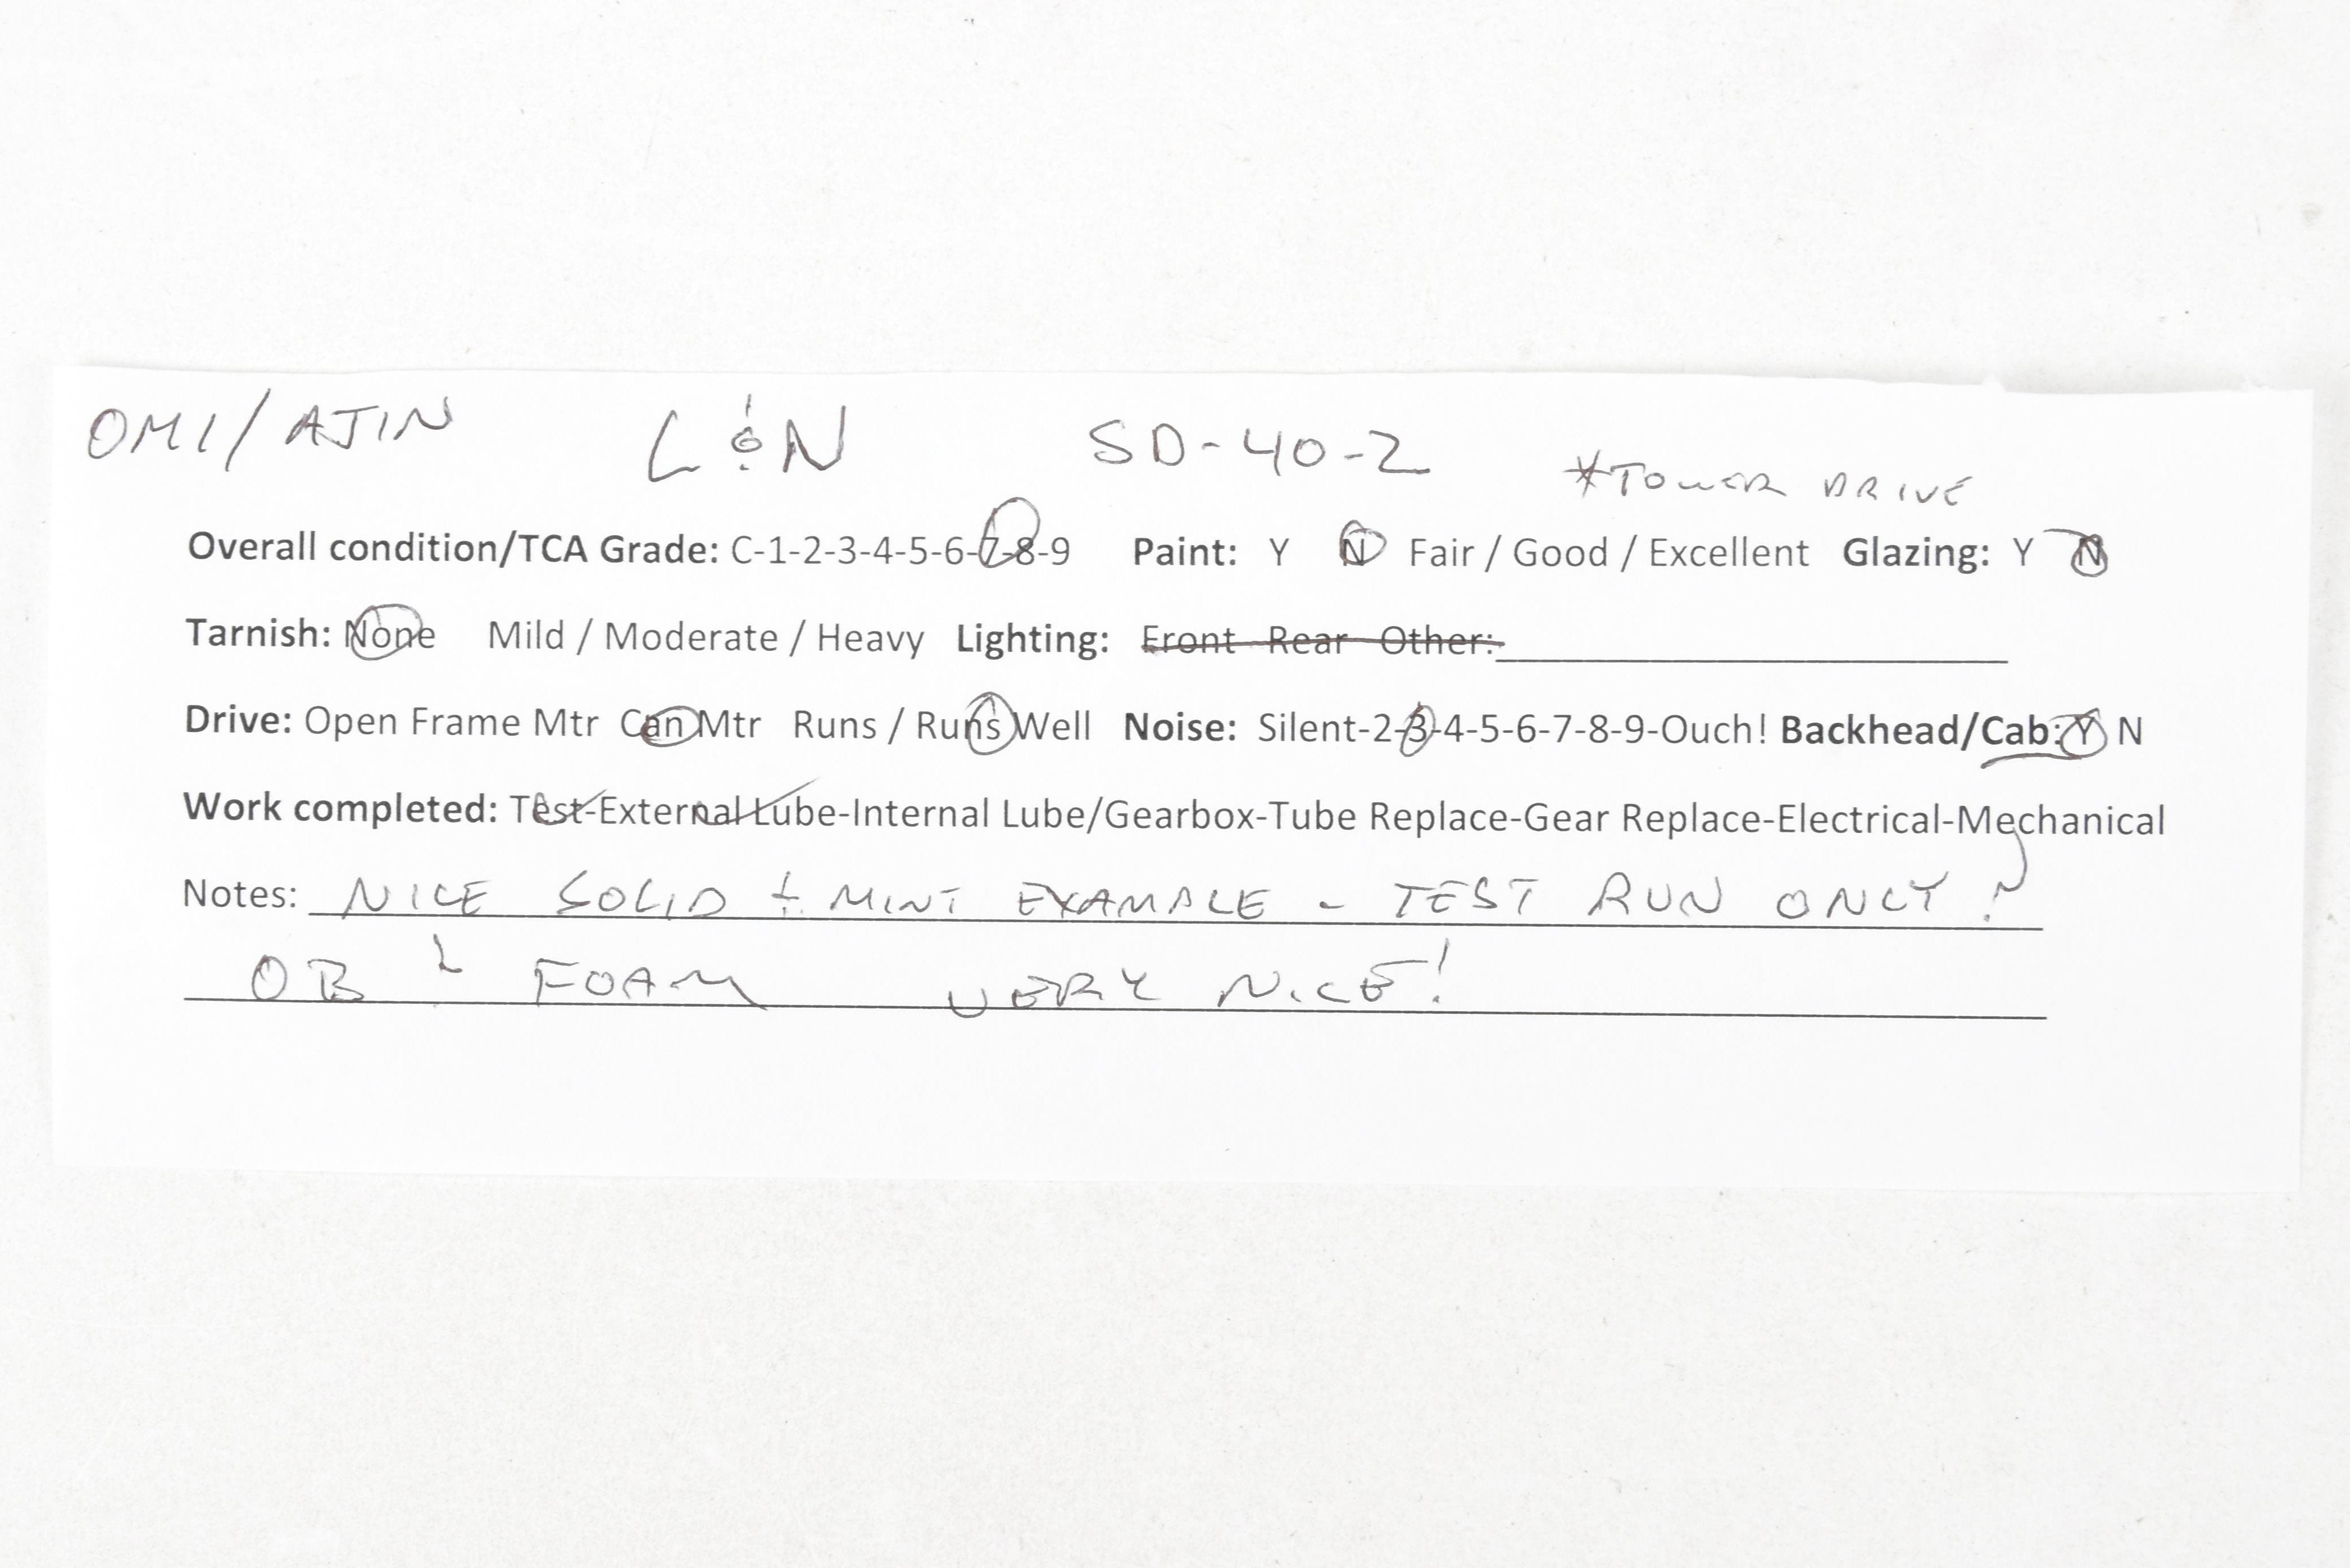 OMI/AJIN L&N SD-40-2 *TOWER DRIVE
Overall condition/TCA Grade: C-1-2-3-4-5-6-7-8-9 Paint: Y N Fair / Good / Excellent Glazing: Y N
Tarnish: None Mild / Moderate / Heavy Lighting: Front Rear Other:
Drive: Open Frame Mtr Can Mtr Runs / Runs Well Noise: Silent-2-3-4-5-6-7-8-9-Ouch! Backhead/Cab: Y N
Work completed: Test-External Lube-Internal Lube/Gearbox-Tube Replace-Gear Replace-Electrical-Mechanical
Notes: NICE SOLID & MINT EXAMPLE - TEST RUN ONLY?
OB & FOAM VERY NICE!